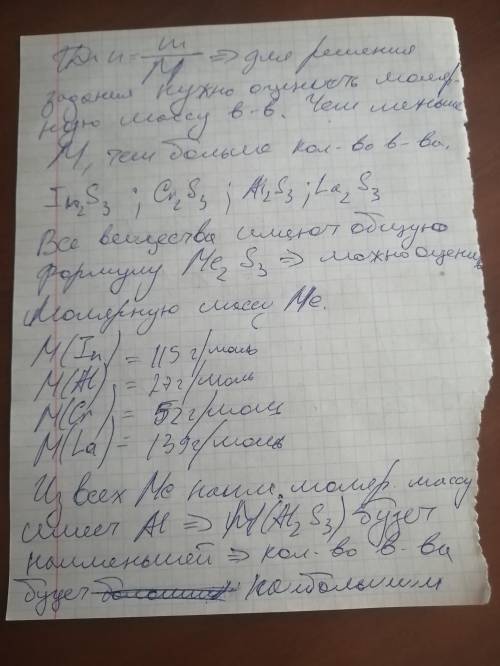 n = m/M => для решения
задания нужно оценить моляр-
ную массу в-в. Чем меньше
M, тем больше кол-во в-ва.
In₂S₃ ; Cr₂S₃ ; Al₂S₃ ; La₂S₃
Все вещества имеют общую
формулу Me₂S₃ => можно оценить
молярную массу Me.
M(In) = 115 г/моль
M(Al) = 27 г/моль
M(Cr) = 52 г/моль
M(La) = 139 г/моль
Из всех Me наим. моляр. массу
имеет Al => M(Al₂S₃) будет
наименьшей => кол-во в-ва
будет наибольшим